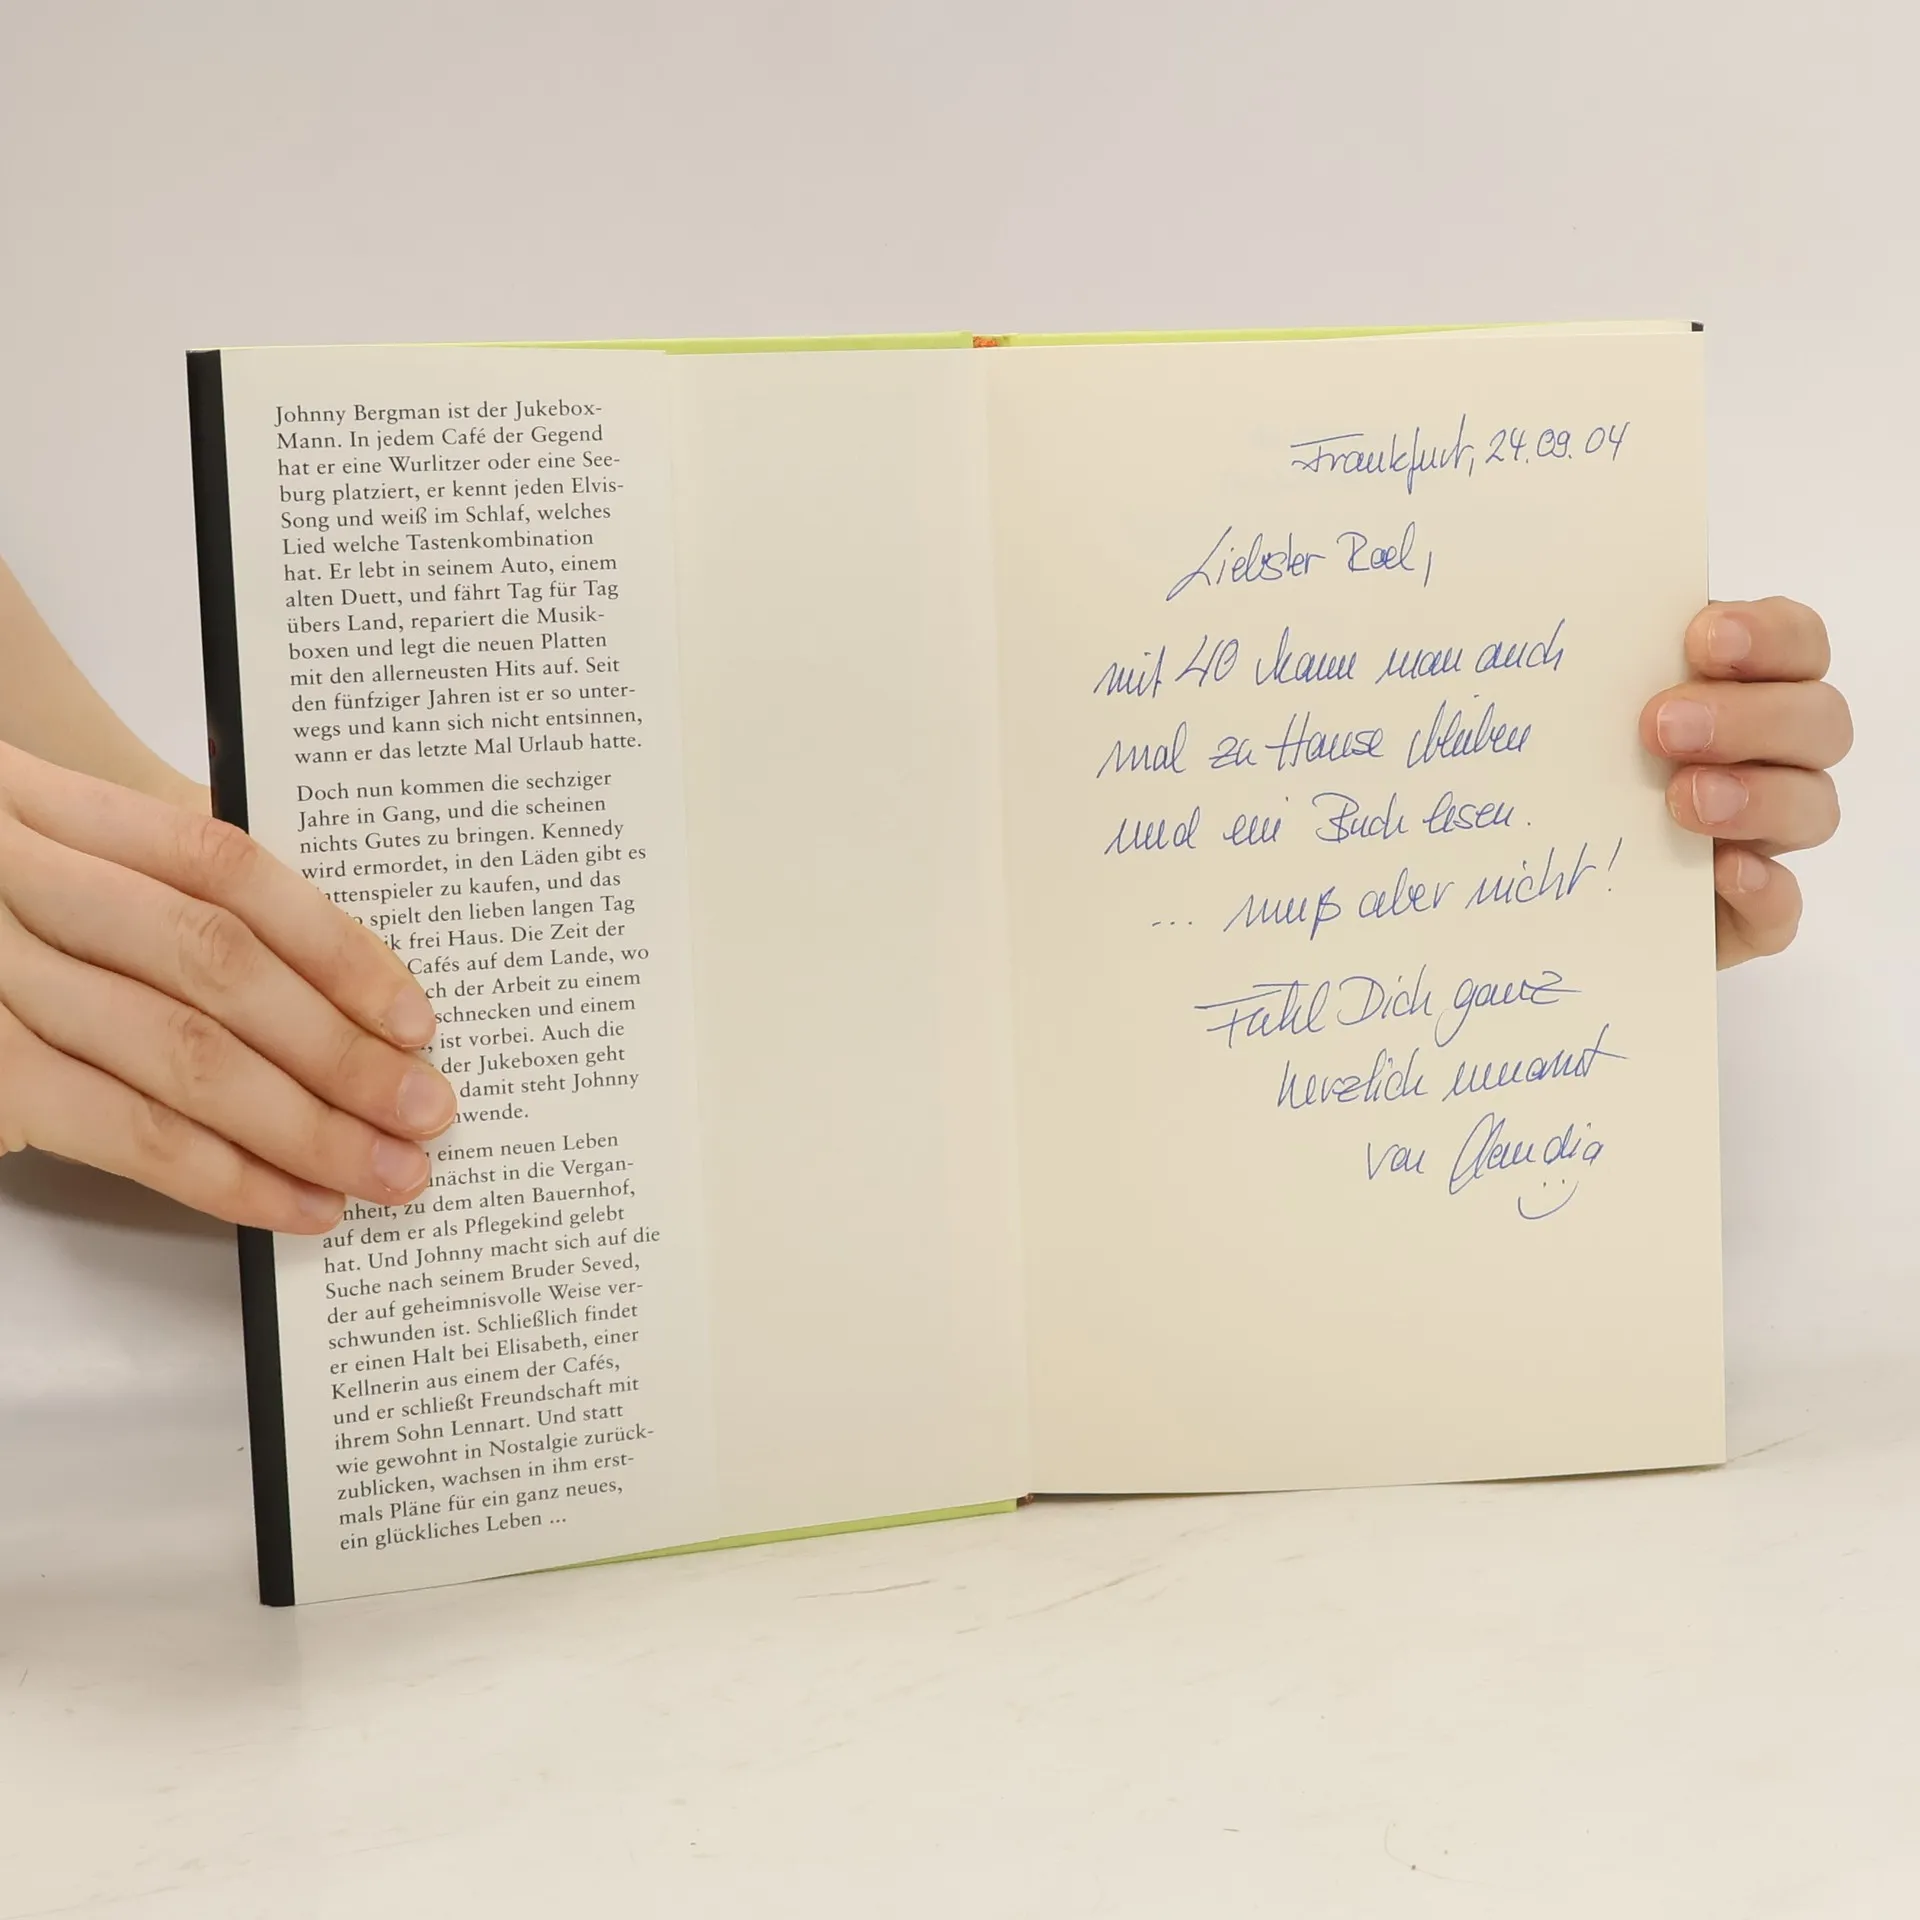 Johnny Bergman ist der Jukebox-
Mann. In jedem Café der Gegend
hat er eine Wurlitzer oder eine See-
burg platziert, er kennt jeden Elvis-
Song und weiß im Schlaf, welches
Lied welche Tastenkombination
hat. Er lebt in seinem Auto, einem
alten Duett, und fährt Tag für Tag
übers Land, repariert die Musik-
boxen und legt die neuen Platten
mit den allerneusten Hits auf. Seit
den fünfziger Jahren ist er so unter-
wegs und kann sich nicht entsinnen,
wann er das letzte Mal Urlaub hatte.
Doch nun kommen die sechziger
Jahre in Gang, und die scheinen
nichts Gutes zu bringen. Kennedy
wird ermordet, in den Läden gibt es
attenspieler zu kaufen, und das
o spielt den lieben langen Tag
ik frei Haus. Die Zeit der
Cafés auf dem Lande, wo
ch der Arbeit zu einem
schnecken und einem
, ist vorbei. Auch die
der Jukeboxen geht
damit steht Johnny
wende.
einem neuen Leben
nächst in die Vergan-
nheit, zu dem alten Bauernhof,
auf dem er als Pflegekind gelebt
hat. Und Johnny macht sich auf die
Suche nach seinem Bruder Seved,
der auf geheimnisvolle Weise ver-
schwunden ist. Schließlich findet
er einen Halt bei Elisabeth, einer
Kellnerin aus einem der Cafés,
und er schließt Freundschaft mit
ihrem Sohn Lennart. Und statt
wie gewohnt in Nostalgie zurück-
zublicken, wachsen in ihm erst-
mals Pläne für ein ganz neues,
ein glückliches Leben ...
Frankfurt, 24.09.04
Liebster Roel,
mit 40 kann man auch
mal zu Hause bleiben
und ein Buch lesen.
... muß aber nicht!
Fühl Dich ganz
herzlich umarmt
von Claudia